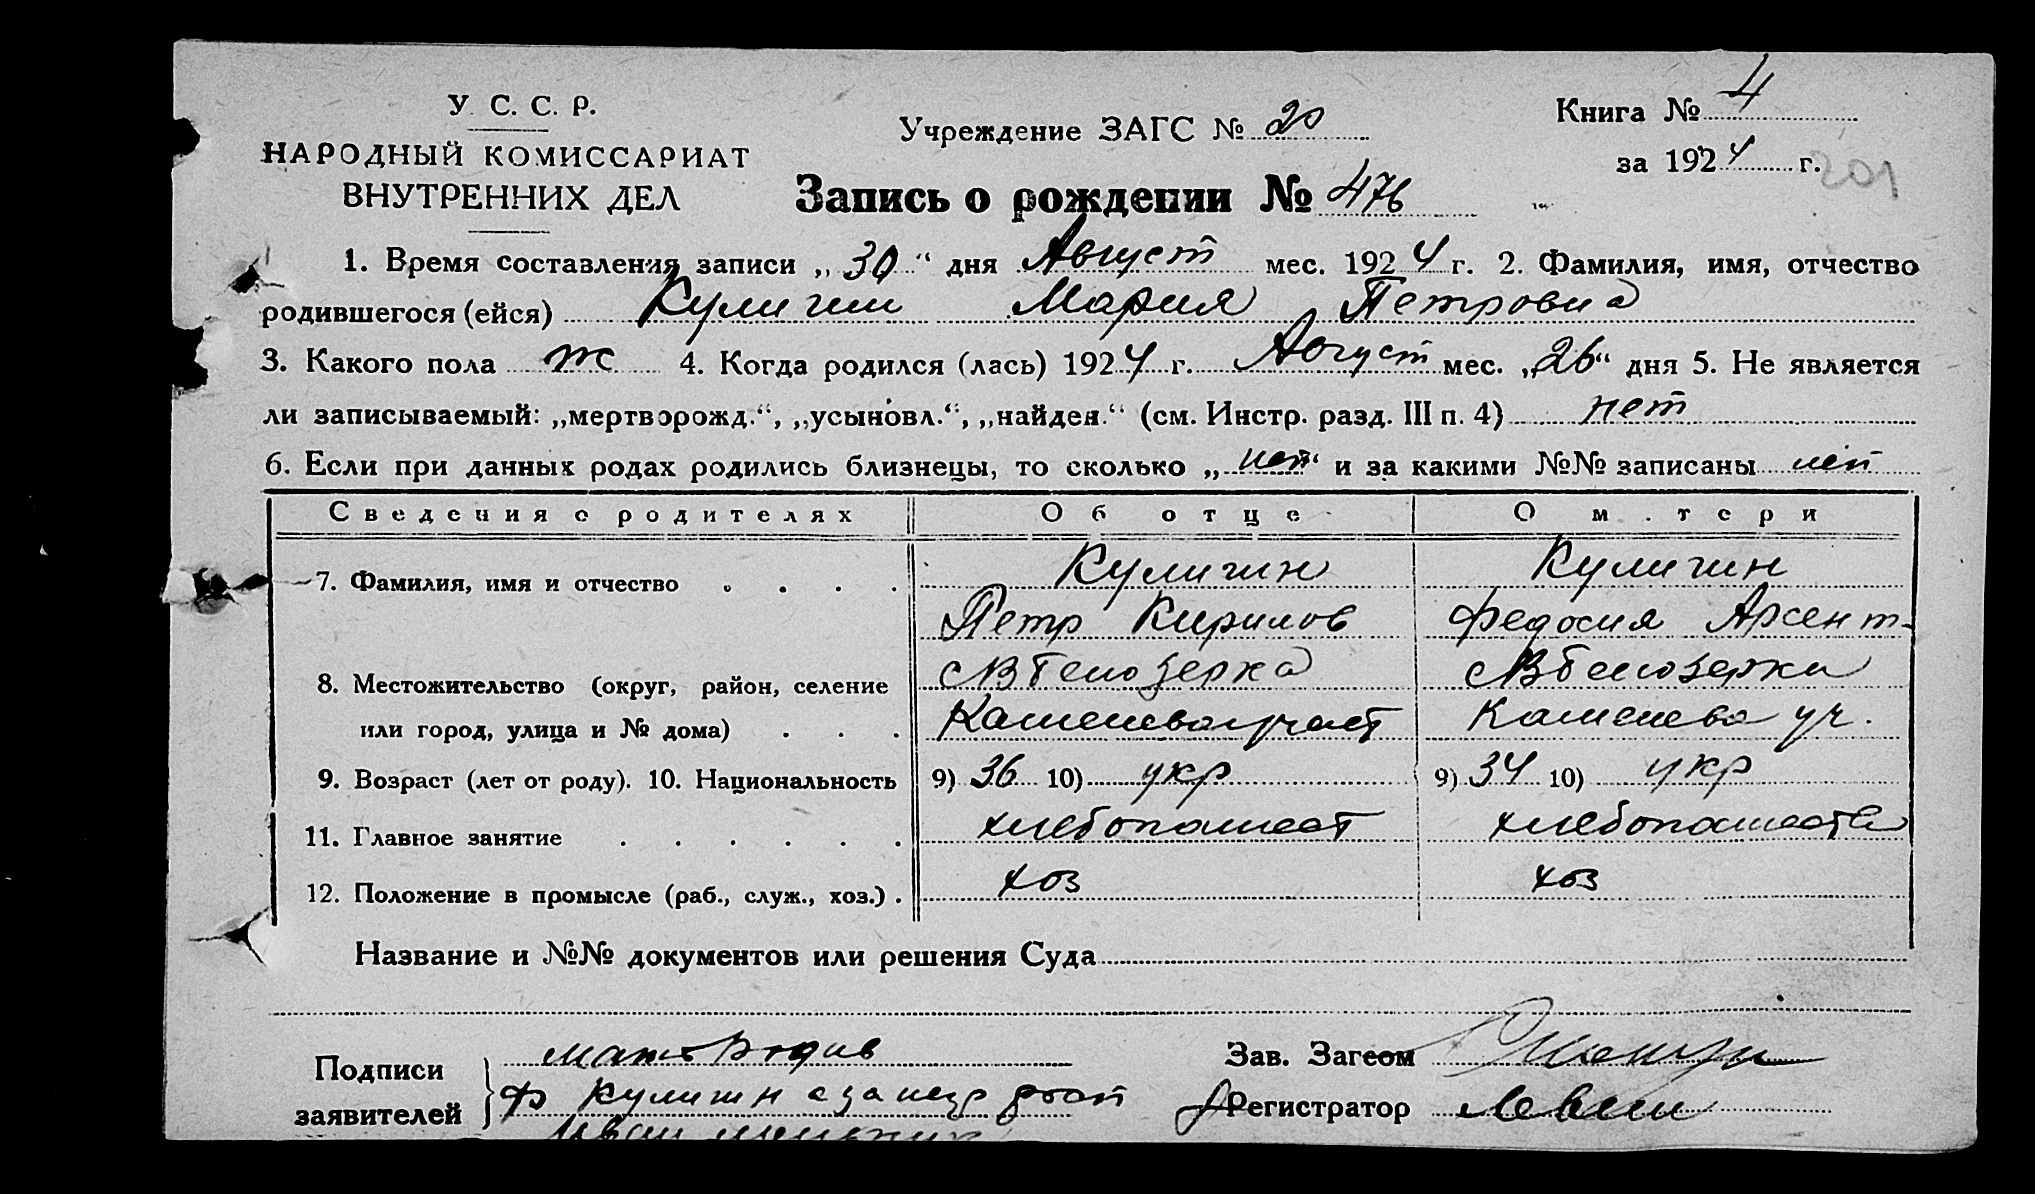 У. С. С. Р.
НАРОДНЫЙ КОМИССАРИАТ
ВНУТРЕННИХ ДЕЛ
Учреждение ЗАГС № 20
Книга № 4
за 1924 г. 201
Запись о рождении № 476
1. Время составления записи „30“ дня Август мес. 1924 г. 2. Фамилия, имя, отчество
родившегося (ейся) Кулигин Мария Петровна
3. Какого пола ж 4. Когда родился (лась) 1924 г. Август мес. „26“ дня 5. Не является
ли записываемый: „мертворожд.“, „усыновл.“, „найден.“ (см. Инстр. разд. III п. 4) нет
6. Если при данных родах родились близнецы, то сколько „нет“ и за какими №№ записаны нет
Сведения о родителях Об отце О м.тери
7. Фамилия, имя и отчество . . . . Кулигин Кулигин
Петр Кирилов Федосия Арсент-
8. Местожительство (округ, район, селение сВбелозерка сВбелозерки
или город, улица и № дома) . . . Каменева участ Каменева уч.
9. Возраст (лет от роду). 10. Национальность 9) 36 10) укр 9) 34 10) укр
11. Главное занятие . . . . . . хлебопашест хлебопашеств
12. Положение в промысле (раб., служ., хоз.) . хоз хоз
Название и №№ документов или решения Суда
Подписи
заявителей
Ф Кулигин
Зав. Загсом
Регистратор Левин